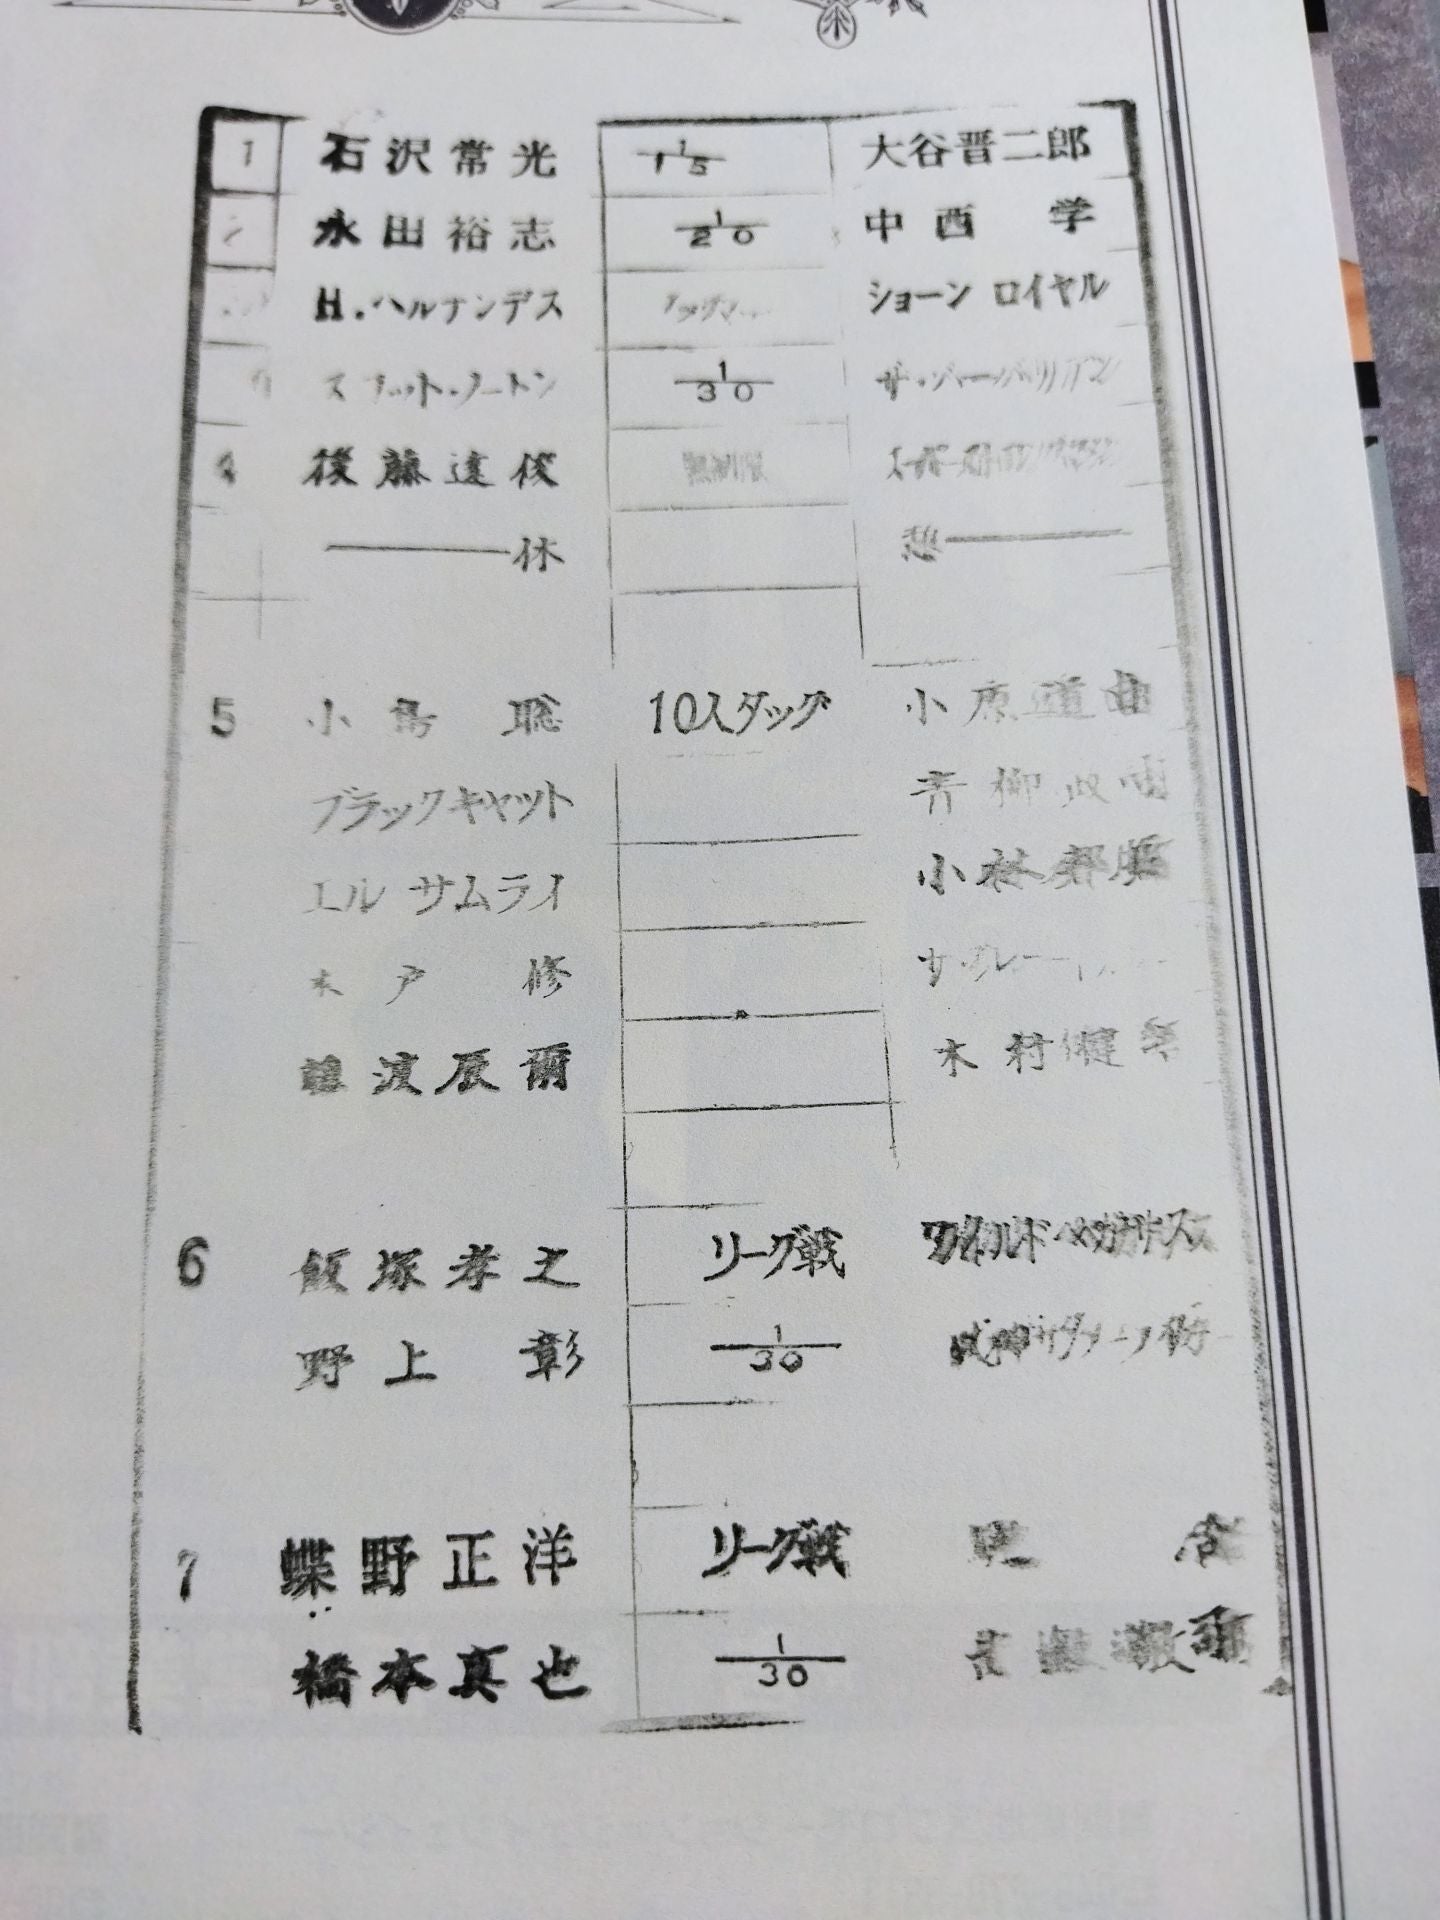 1 石沢常光 1/15 大谷晋二郎
2 永田裕志 1/20 中西 学
H.ヘルナンデス タッグマ ショーン ロイヤル
スコット・ノートン 1/30 ザ・バーバリアン
4 後藤達俊
――休 憩――
5 小島 聡 10人タッグ 小原道由
ブラックキャット 青柳政司
エル サムライ 小林邦昭
木戸 修 ザ・グレート
藤波辰爾 木村健吾
6 飯塚孝之 リーグ戦 ワイルド・ペガサス
野上 彰 1/30
7 蝶野正洋 リーグ戦
橋本真也 1/30